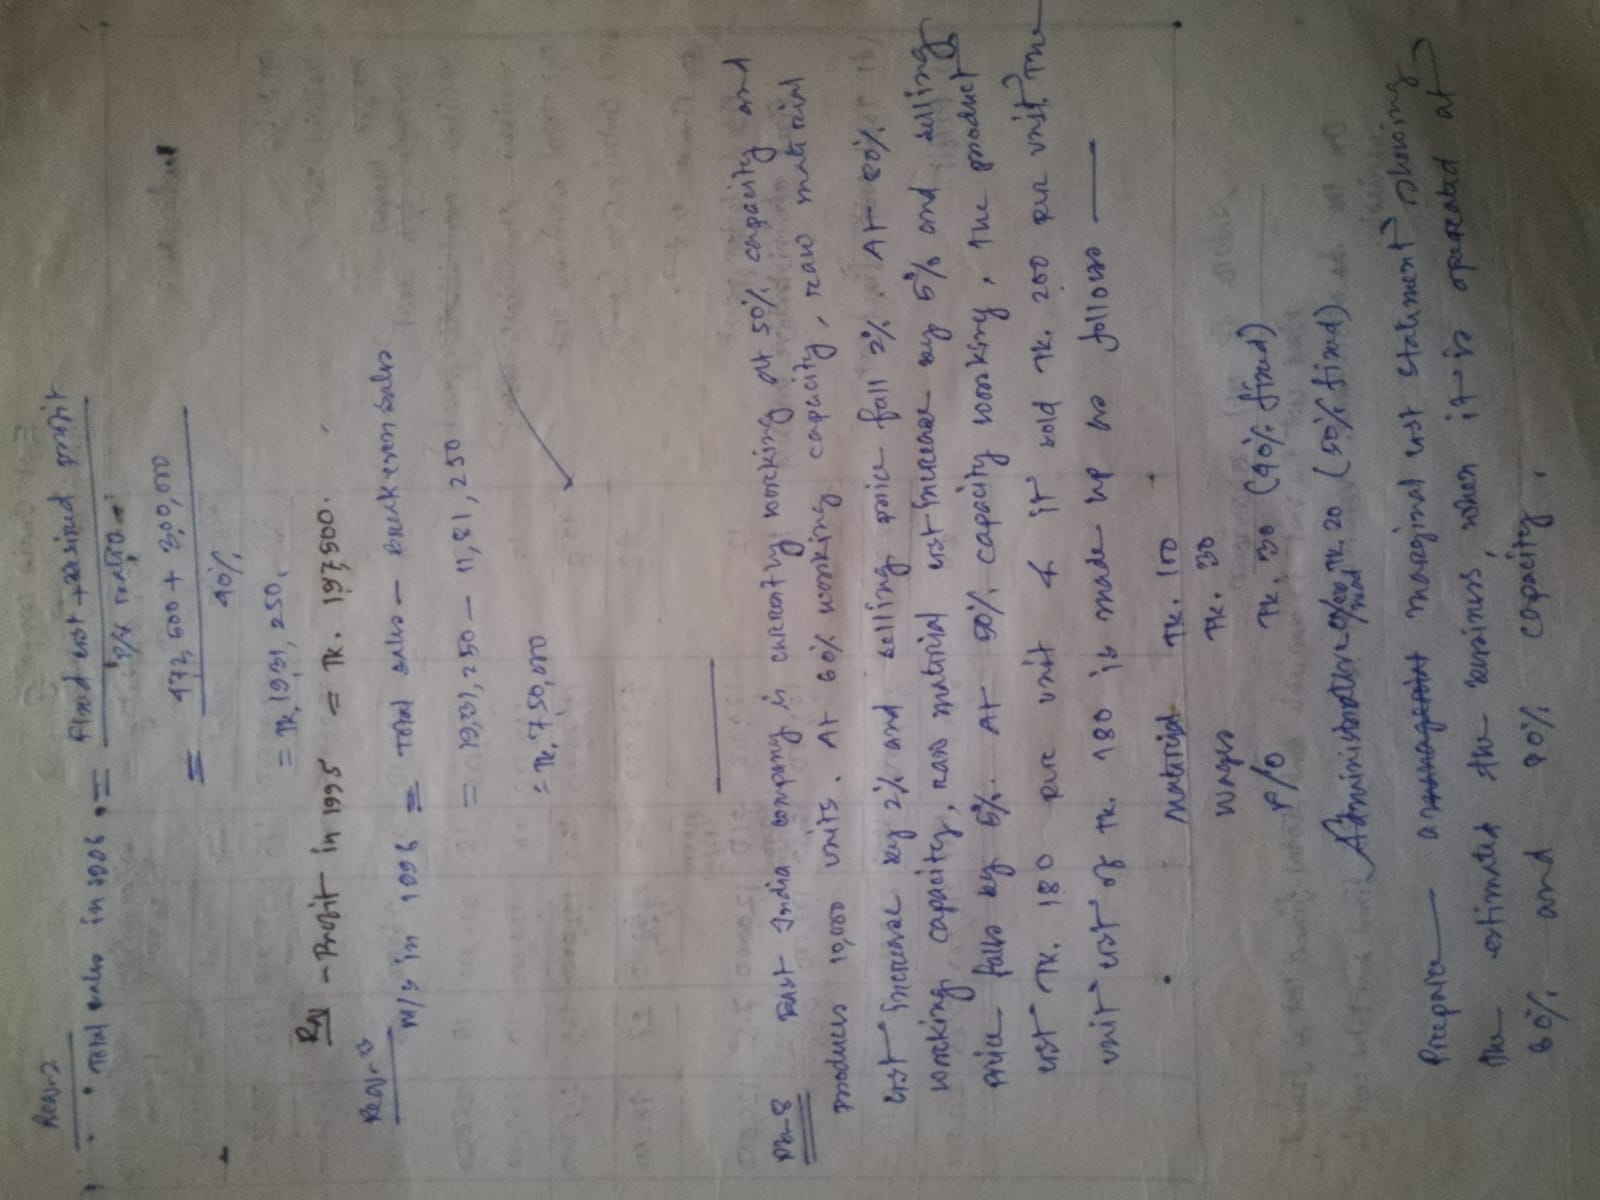 Reqr-2
∴ Total sales in 1996 = Fixed cost + desired profit
P/V ratio
= 4,72,500 + 3,00,000
40%
= Tk. 19,31,250.
Re - Profit in 1995 = Tk. 197,500.
Reqr-3
M/S in 1996 = Total sales - Break even sales
= 19,31,250 - 11,81,250
= Tk. 7,50,000
Pb-8 East India company is currently working at 50% capacity and
produces 10,000 units. At 60% working capacity, raw material
cost increase by 2% and selling price fall 2%. At 80%
working capacity, raw material cost increase by 5% and selling
price falls by 5%. At 50% capacity working, the product
cost Tk. 180 per unit & it sold Tk. 200 per unit. The
unit cost of Tk. 180 is made up as follows —
Material Tk. 100
Wages Tk. 30
F/O Tk. 30 (40% fixed)
Administrative Tk. 20 (50% fixed)
Prepare — a marginal cost statement showing
the estimated the business, when it is operated at
60% and 80% capacity.